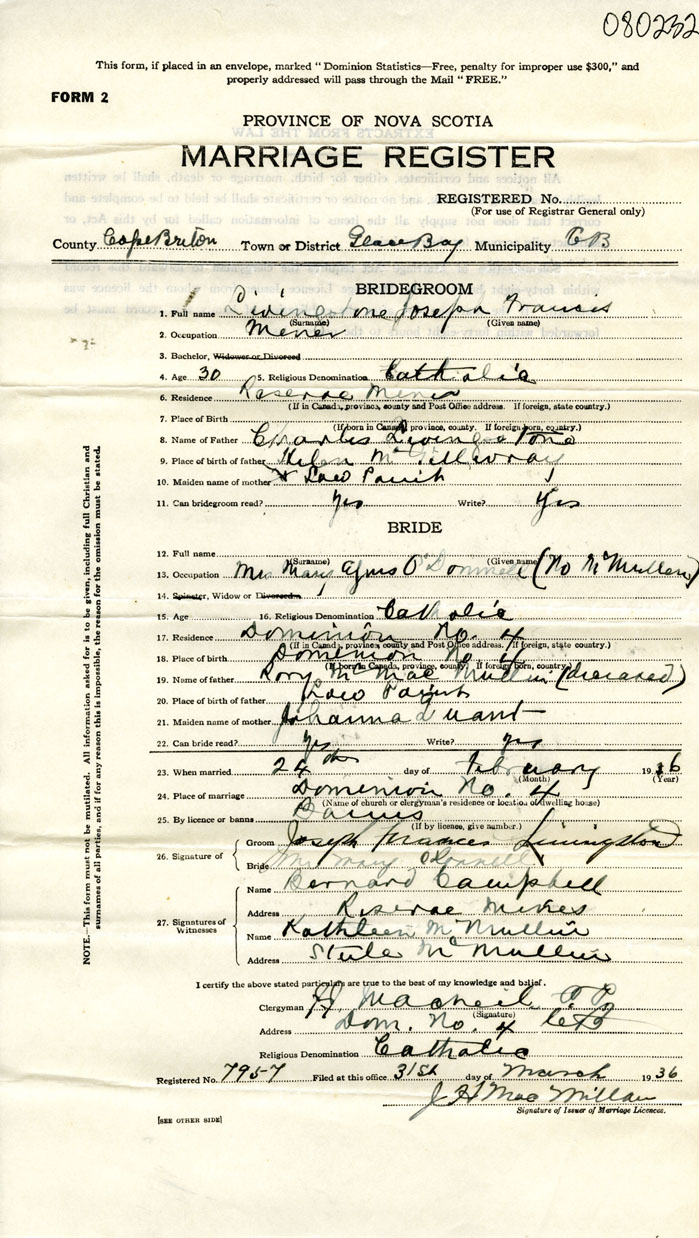 080232
This form, if placed in an envelope, marked "Dominion Statistics—Free, penalty for improper use $300," and
properly addressed will pass through the Mail "FREE."
FORM 2
PROVINCE OF NOVA SCOTIA
MARRIAGE REGISTER
REGISTERED No.
(For use of Registrar General only)
County Cape Briton Town or District Glace Bay Municipality C B
BRIDEGROOM
1. Full name Livingstone Joseph Francis
(Surname) (Given name)
2. Occupation Miner
3. Bachelor, Widower or Divorced
4. Age 30 5. Religious Denomination Catholic
6. Residence Reserve Mines
(If in Canada, province, county and Post Office address. If foreign, state country.)
7. Place of Birth
(If born in Canada, province, county. If foreign born, country.)
8. Name of Father Charles Livingstone
9. Place of birth of father Helen McGillivray
10. Maiden name of mother Low Parish
11. Can bridegroom read? Yes Write? Yes
BRIDE
12. Full name
(Surname) (Given name)
13. Occupation Mrs Mary Agnes O'Donnell (No McMullen)
14. Spinster, Widow or Divorced
15. Age 16. Religious Denomination Catholic
17. Residence Dominion No. 4
(If in Canada, province, county and Post Office address. If foreign, state country.)
18. Place of birth Dominion No 4
(If born in Canada, province, county. If foreign born, country.)
19. Name of father Rory Mc Mullin (deceased)
20. Place of birth of father Low Parish
21. Maiden name of mother Johanna
22. Can bride read? Yes Write? Yes
23. When married 24th day of February 1936
(Month) (Year)
24. Place of marriage Dominion No. 4
(Name of church or clergyman's residence or location of dwelling house)
25. By licence or banns Banns
(If by licence, give number.)
26. Signature of
Groom Joseph Frances Livingston
Bride Mrs Mary O'Donnell
27. Signatures of Witnesses
Name Bernard Campbell
Address Reserve Mines
Name Kathleen McMullin
Address McMullin
I certify the above stated particulars are true to the best of my knowledge and belief.
Clergyman MacNeil P.P.
(Signature)
Address Dom. No. 4 C B
Religious Denomination Catholic
Registered No. 7957 Filed at this office 31st day of March 1936
J H MacMillan
Signature of Issuer of Marriage Licences.
[SEE OTHER SIDE]
NOTE.—This form must not be mutilated. All information asked for is to be given, including full Christian and
surnames of all parties, and if for any reason this is impossible, the reason for the omission must be stated.